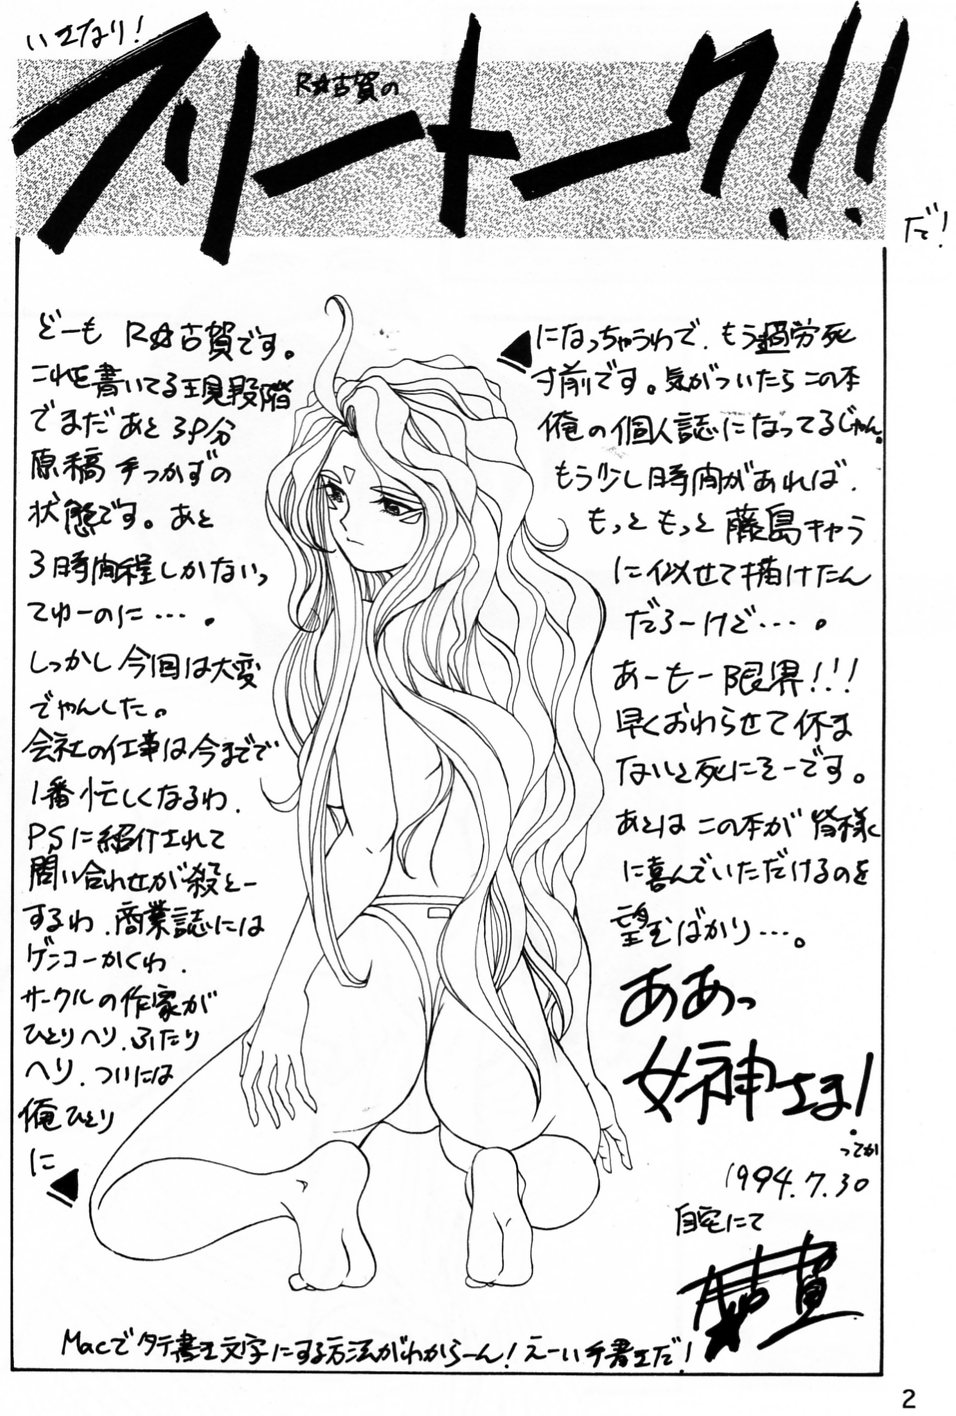 いきなり!
R☆古賀の
フリートーク!!
だ!
どーも R☆古賀です。
これを書いてる現段階
でまだあと3P分
原稿手つかずの
状態です。あと
3時間程しかないっ
てゆーのに…。
しっかし今回は大変
でやんした。
会社の仕事は今までで
1番忙しくなるわ、
PSに紹介されて
問い合わせが殺とー
するわ、商業誌には
ゲンコーかくわ、
サークルの作家が
ひとりヘリ、ふたり
ヘリ、ついには
俺ひとり
に
になっちゃうわで、もう過労死
寸前です。気がついたらこの本
俺の個人誌になってるじゃん。
もう少し時間があれば、
もっともっと藤島キャラ
に似せて描けたん
だろーけど…。
あーもー限界!!!
早くおわらせて休ま
ないと死にそーです。
あとはこの本が皆様
に喜んでいただけるのを
望むばかり…。
ああっ
女神さま!
ってか
1994.7.30
自宅にて
R☆古賀
Macでタテ書き文字にする方法がわからーん!えーい手書きだ!
2